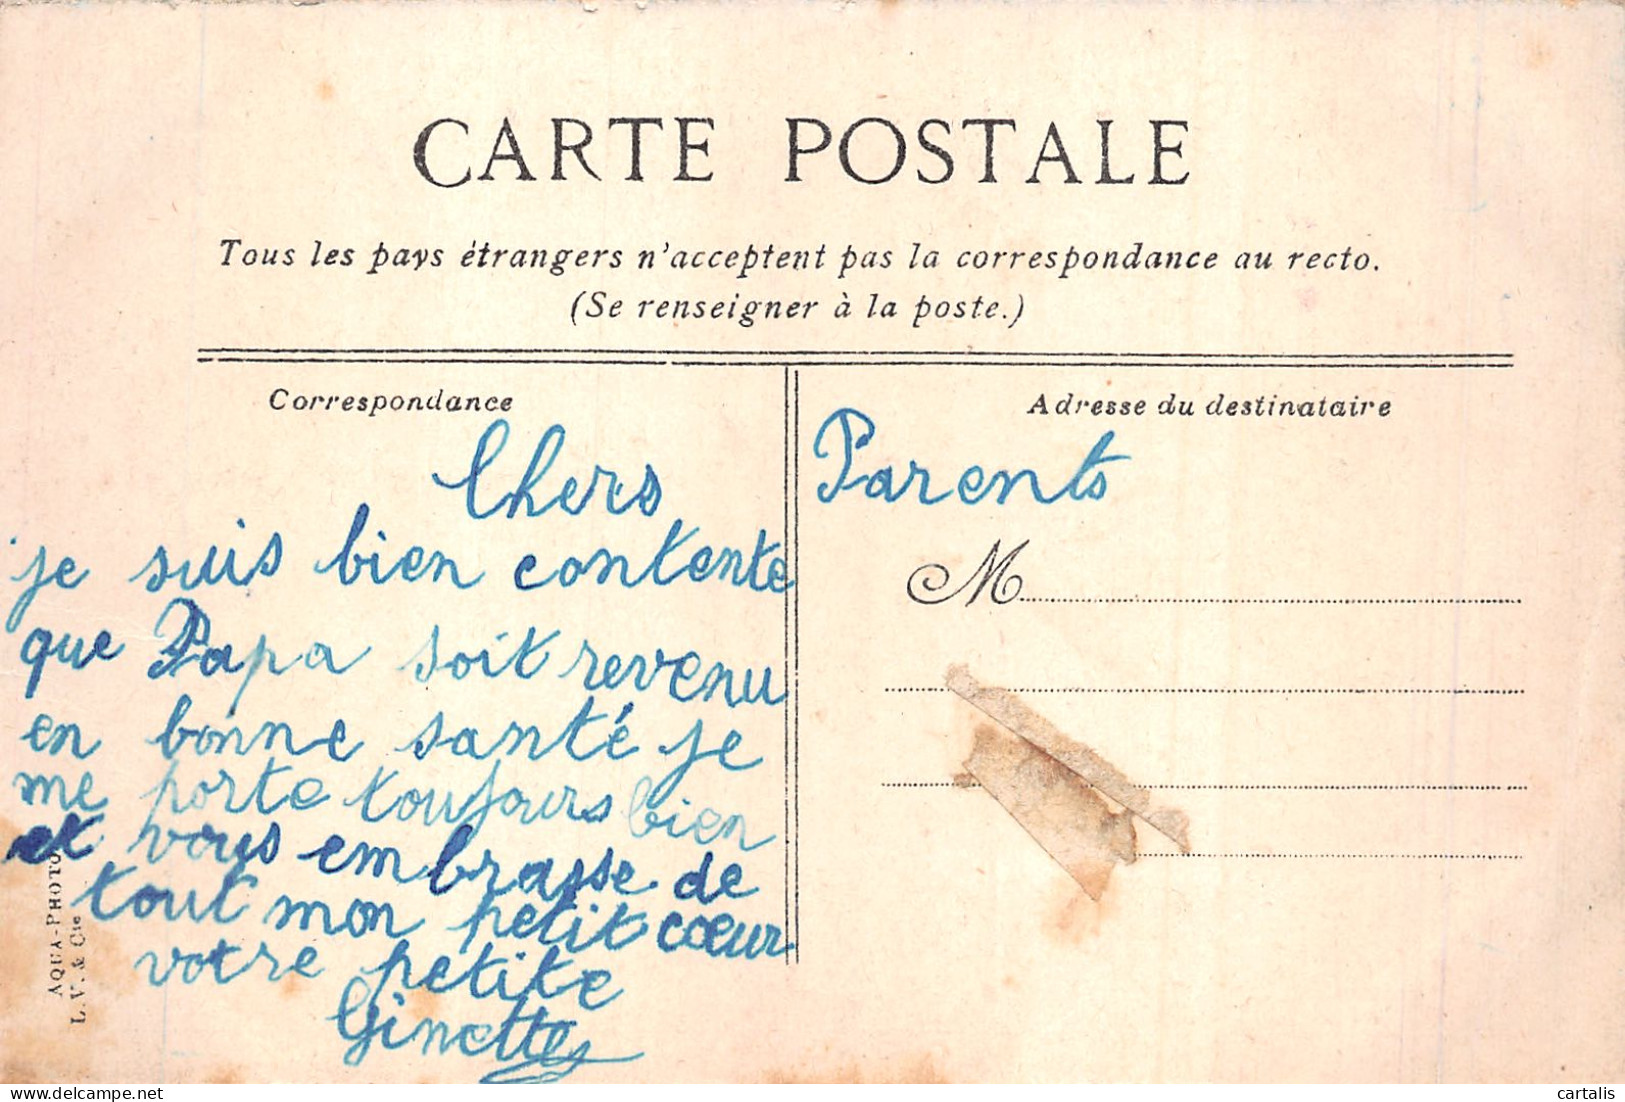 CARTE POSTALE
Tous les pays étrangers n'acceptent pas la correspondance au recto.
(Se renseigner à la poste.)
Correspondance
Adresse du destinataire
Chers Parents
je suis bien contente
que Papa soit revenu
en bonne santé je
me porte toujours bien
et vous embrasse de
tout mon petit cœur
votre petite
Ginette
M
AQUA-PHOTO
L. V. & Cie
cartalis